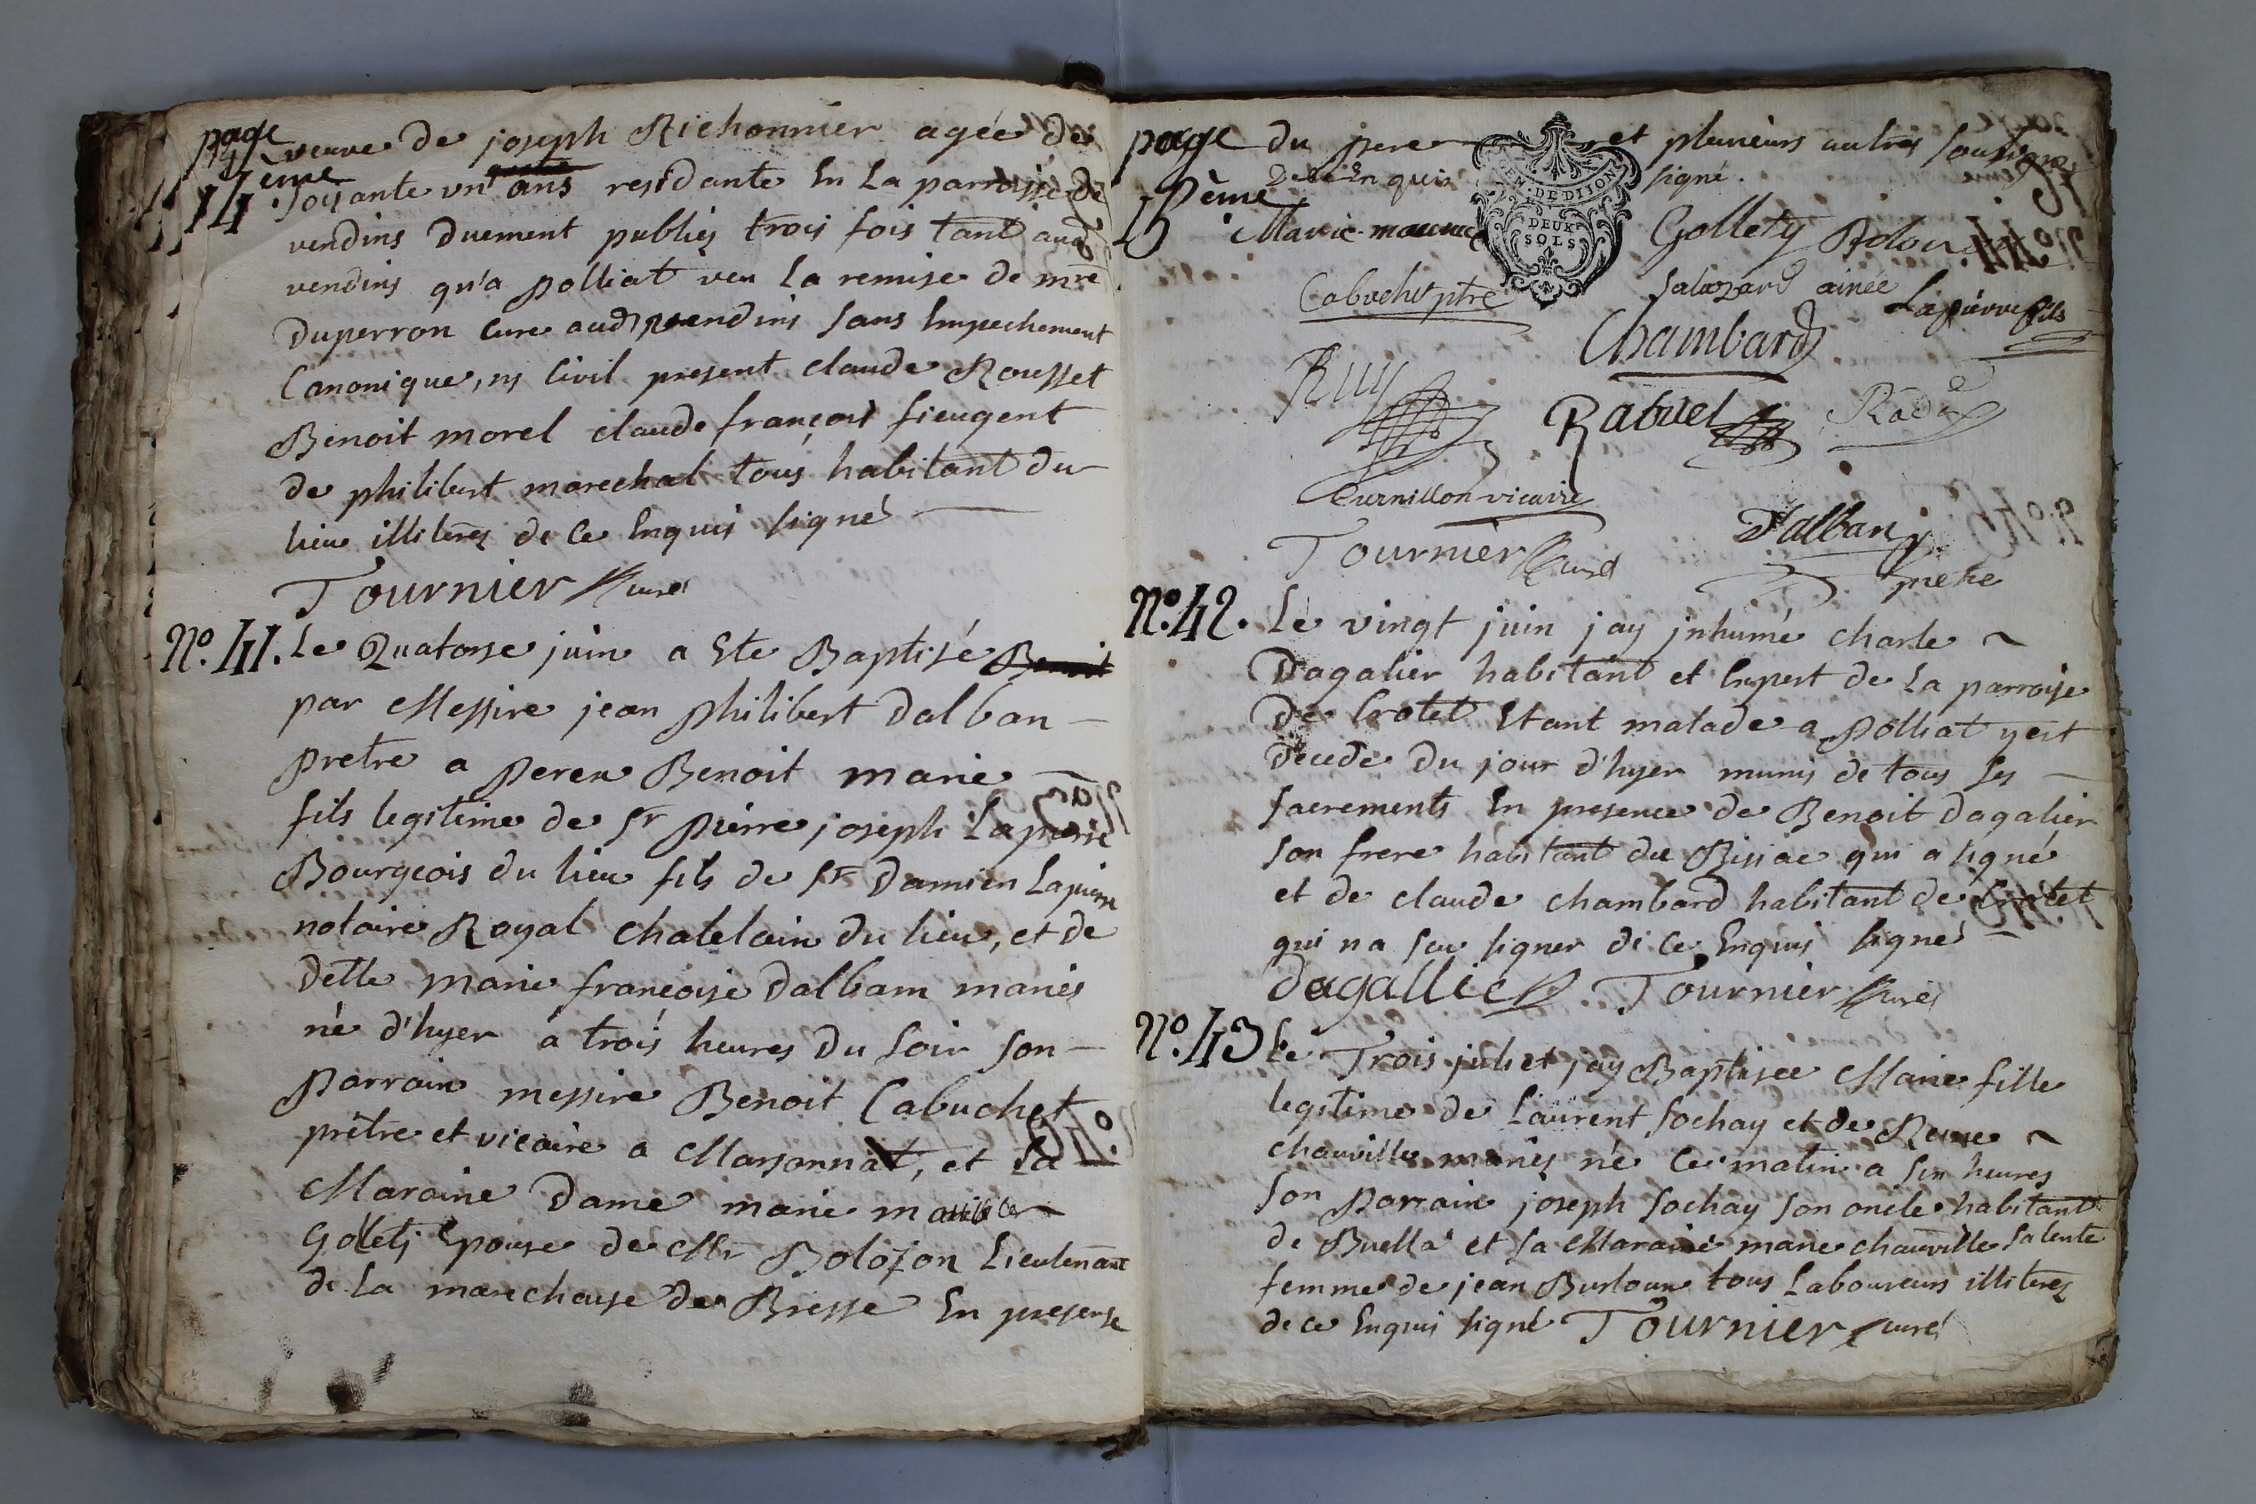 page
14.ème
veuve de joseph Richonnier agée de
soisante un ans residante En La parroisse de
vendins Duement publiés trois fois tant aud
vendins qu'a polliat veu la remise de mre
Duperron Curé aud vendins sans Empechement
Canonique, ny Civil present claude Rousset
Benoit morel claude françois fieugent
de philibert marechal tous habitant du
lieu illiterés de Ce Enquis signé
Tournier Curé
No. 41. Le Quatorse juin a Ete Baptisé Benoit
par Messire jean philibert Dalban
pretre a peren Benoit marie
fils legitime de Sr pierre joseph Lapierre
Bourgeois du lieu fils de Sr Damien Lapierre
notaire Royal Chatelain du lieu, et de
delle marie françoise Dalbam mariés
né d'hyer à trois heures du soir son
parrain messire Benoit Cabuchet
prêtre et vicaire a Marsonnat, et la
Maraine Dame marie
Goletj Epouse de Mr Bolozon Lieutenant
de la marechause de Bresse En presense
page
15ème
du pere et plusieurs autres sousignes
de ce Enquis signé.
Marie Gollety Bolozon
Cabuchet ptre Salazard ainée
Lapierre fils
Chambard
Ruy
Rabuel
Curnillon vicaire
D'alban
Tournier Curé
mere
No. 42. Le vingt juin jay jnhumé charle
Dagalier habitant et Expert de la parroise
de Crotet Etant malade a Polliat y est
decede du jour d'hyer munis de tous ses
sacrements En presence de Benoit Dagalier
son frere habitant du Bisiac qui a signé
et de claude chambard habitant de Crotet
qui na seu signer de Ce Enquis signé
Dagallier Tournier Curé
No. 43. Le Trois juliet jay Baptisée Marie fille
legitime de Laurent Sochay et de Reine
chauville mariés né Ce matin a six heures
son parrain joseph Sochay son oncle habitant
de Buella et sa Maraine marie chauville sa tente
femme de jean Burloux tous Laboureurs illiterés
de ce Enquis signé Tournier curé
GEN. DE DIJON
DEUX
SOLS